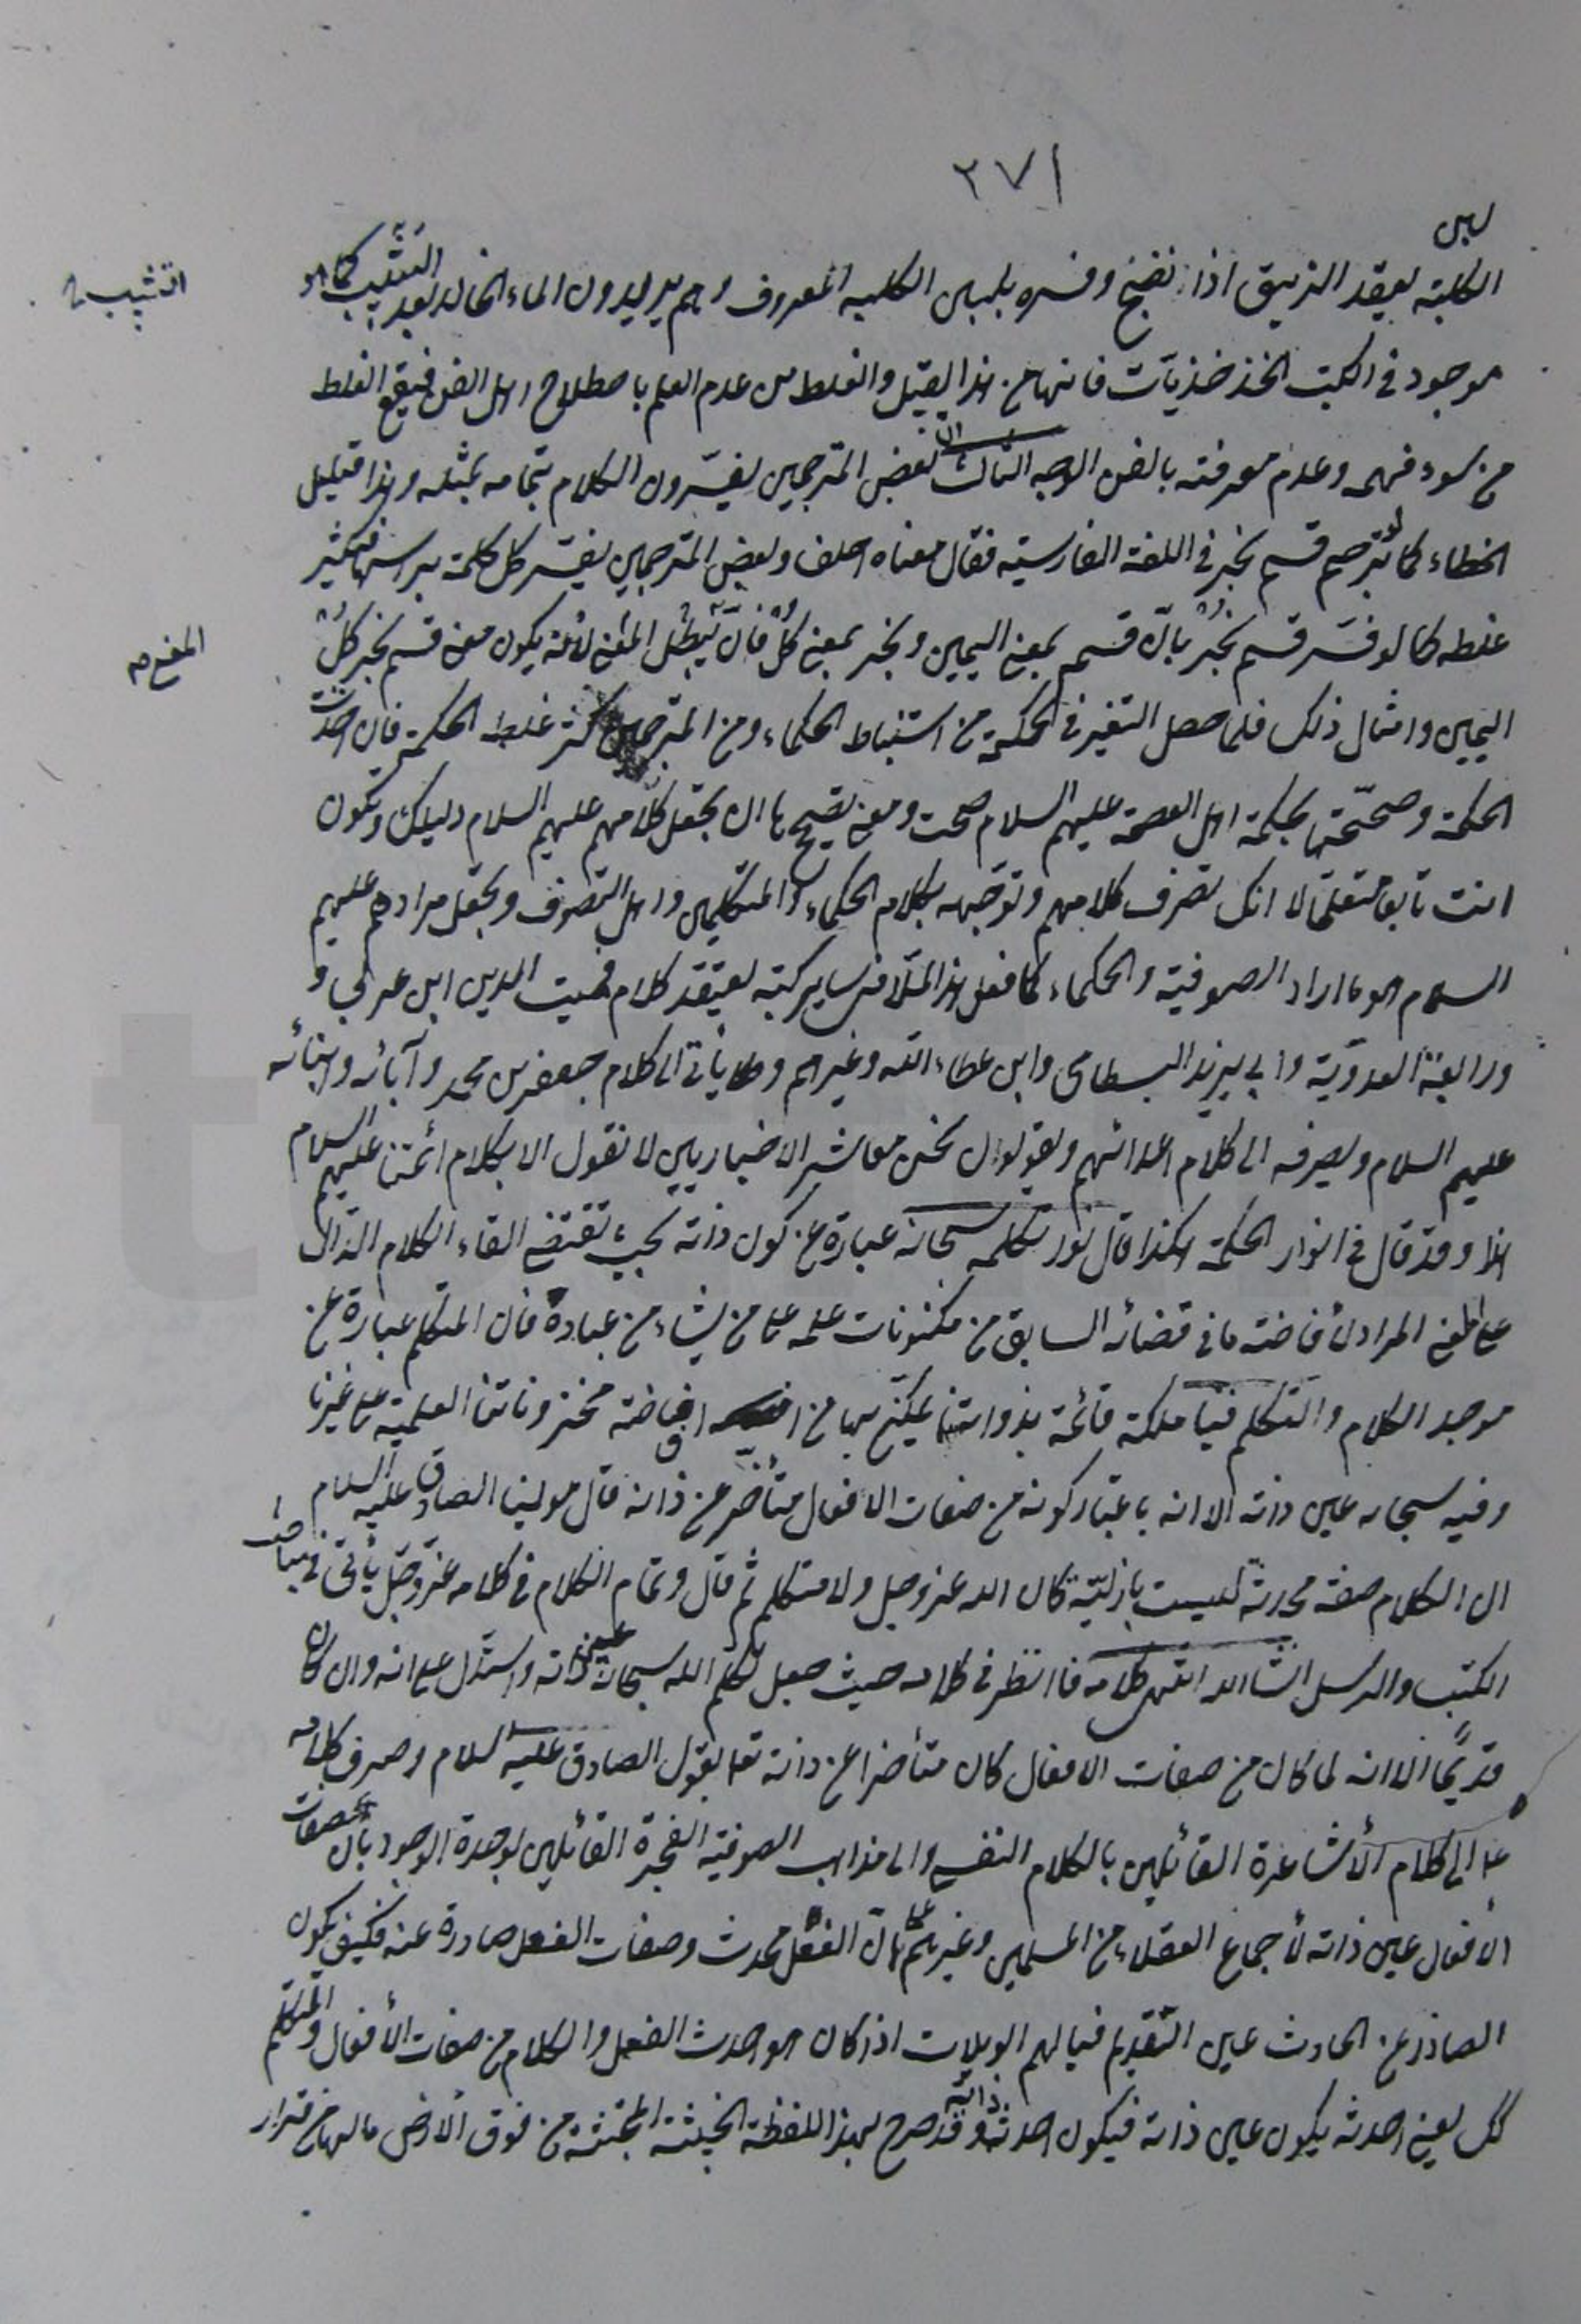 ٢٧١
لبن
الكلبة يعقد الزيبق اذا نضج وفسره بلبن الكلبه المعروف وهم يريدون الماء الخالد بعد التثبيب كما هو
التشبيب
موجود في الكتب الخذخذيات فانها من هذا القبيل والغلط من عدم العلم باصطلاح اهل الفن فيقع الغلط
من سوء فهمه وعدم معرفته بالفن الوجه الثالث ان بعض المترجمين يفسّرون الكلام بتمامه بمثله وهذا قليل
الخطاء كما ترجم قسم بخور في اللغة الفارسية فقال معناه احلف وبعض المترجمين يفسّر كل كلمة براسها فيكثر
غلطه كما لو فسّر قسم بخور بانّ قسم بمعنى اليمين وبخور بمعنى كُلْ فانّه يبطل المعنى لأنه يكون معنى قسم بخور كُلْ
المعنى صه
اليمين وامثال ذلك فلما حصل التغير في الحكمة من استنباط الحكماء ومن المترجمين كثر غلط الحكمة فان اخذت
الحكمة وصحّحتها بحكمة اهل العصمة عليهم السلام صحت ومعنى تصحيحها ان تجعل كلامهم عليهم السلام دليلك وتكون
انت تابعا متعلما لا انك تصرف كلامهم وتوجّهه بكلام الحكماء والمتكلمين واهل التصوف وتجعل مرادهم عليهم
السلام هو ما اراد الصوفية والحكماء كما فعل هذا الملا في ساير كتبه يعتقد كلام مميت الدين ابن عربي و
ورابعة العدويّة وابي يزيد البسطامي وابن عطاء الله وغيرهم و يأتي الى كلام جعفر بن محمد وآبائه وابنائه
عليهم السلام ويصرفه الى كلام اعدائهم ويقولون نحن معاشر الاخباريين لا نقول الا بكلام ائمتنا عليهم السلام
هذا وقد قال في انوار الحكمة هكذا قال نور تكلمه سبحانه عبارة عن كون ذاته بحيث تقتضي القاء الكلام الدال
على المعنى المراد لأفاضة ما في قضائه السابق من مكنونات علمه على من يشاء من عباده فان المتكلم عبارة عن
موجد الكلام والتكلم فينا ملكة قائمة بذواتنا يمكّن بها من افاضة مخزوناتنا العلمية على غيرنا
وفيه سبحانه عين ذاته الا انه باعتبار كونه من صفات الافعال متأخّر عن ذاته قال مولينا الصادق عليه السلام
ان الكلام صفة محدثة ليست بازليّة كان الله عز وجل ولا متكلم ثم قال وتمام الكلام في كلامه عز وجل يأتي في مباحث
الكتب والرسل انشاالله انتهى كلامه فانظر في كلامه حيث جعل تكلم الله سبحانه عين ذاته واستدل على انه وان كان
قديمًا الا انه لما كان من صفات الافعال كان متأخرا عن ذاته تعا بقول الصادق عليه السلام وصرف كلامه
ع الى كلام الأشاعرة القائلين بالكلام النفسي والى مذاهب الصوفية الفجرة القائلين بوحدة الوجود بأن صفات
الأفعال عين ذاته لأجماع العقلاء من المسلمين وغيرهم على ان الفعل محدث وصفات الفعل صادرة عنه فكيف يكون
الصادر عن الحادث عين القديم فيا لهم الويلات اذا كان هو احدث الفعل والكلام من صفات الأفعال والمتكلم
كك يعني احدثه يكون عين ذاته فيكون احدث ذاته وقد صرح بهذا اللفظة الخبيثة المجتثة من فوق الأرض ما لها من قرار